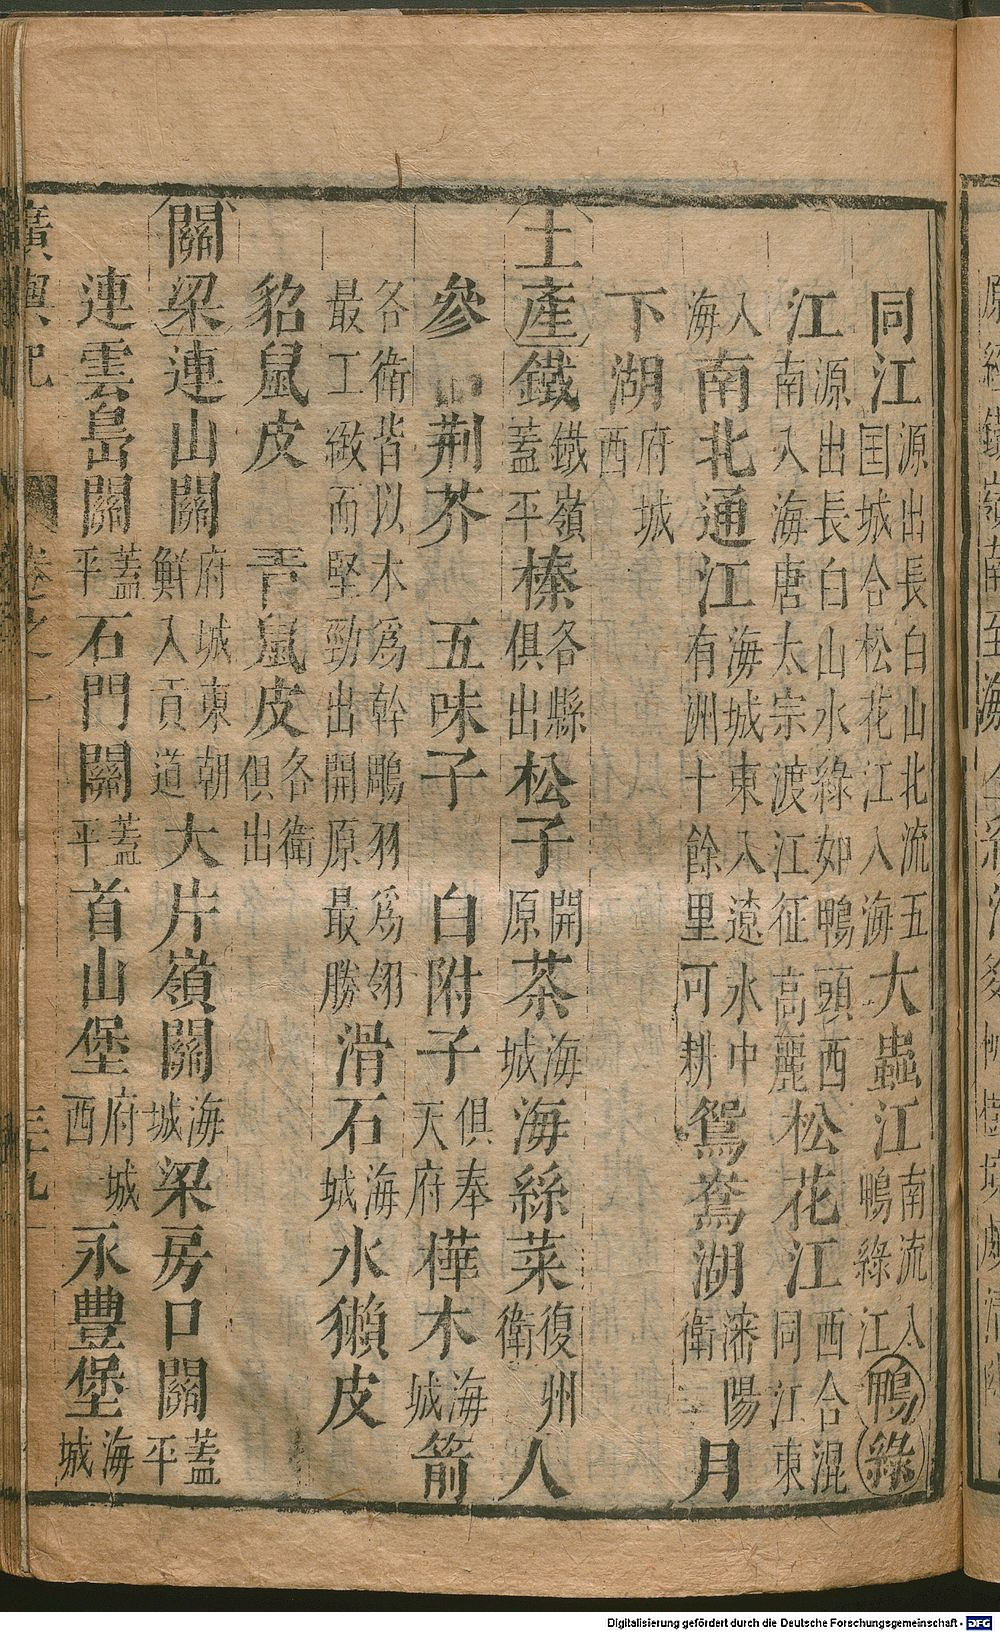 同江源出長白山北流五国城合松花江入海大蟲江南流入鴨綠江鴨綠
江源出長白山水綠如鴨頭西南入海唐太宗渡江征高麗松花江西合混同江東
入海南北通江海城東入遼水中有洲十餘里可耕鴛鴦湖瀋陽衛月
下湖府城西
土產鐵鐵嶺蓋平榛各縣俱出松子開原茶海城海絲菜復州衛人
參荆芥五味子白附子俱奉天府樺木海城箭
各衛皆以木爲幹鵰羽爲翎最工緻而堅勁出開原最勝滑石海城水獺皮
貂鼠皮青鼠皮各衛俱出
關梁連山關府城東朝鮮入貢道大片嶺關海城梁房口關蓋平
連雲島關蓋平石門關蓋平首山堡府城西永豐堡海城
廣輿記 卷之一 三十九
Digitalisierung gefördert durch die Deutsche Forschungsgemeinschaft - DFG